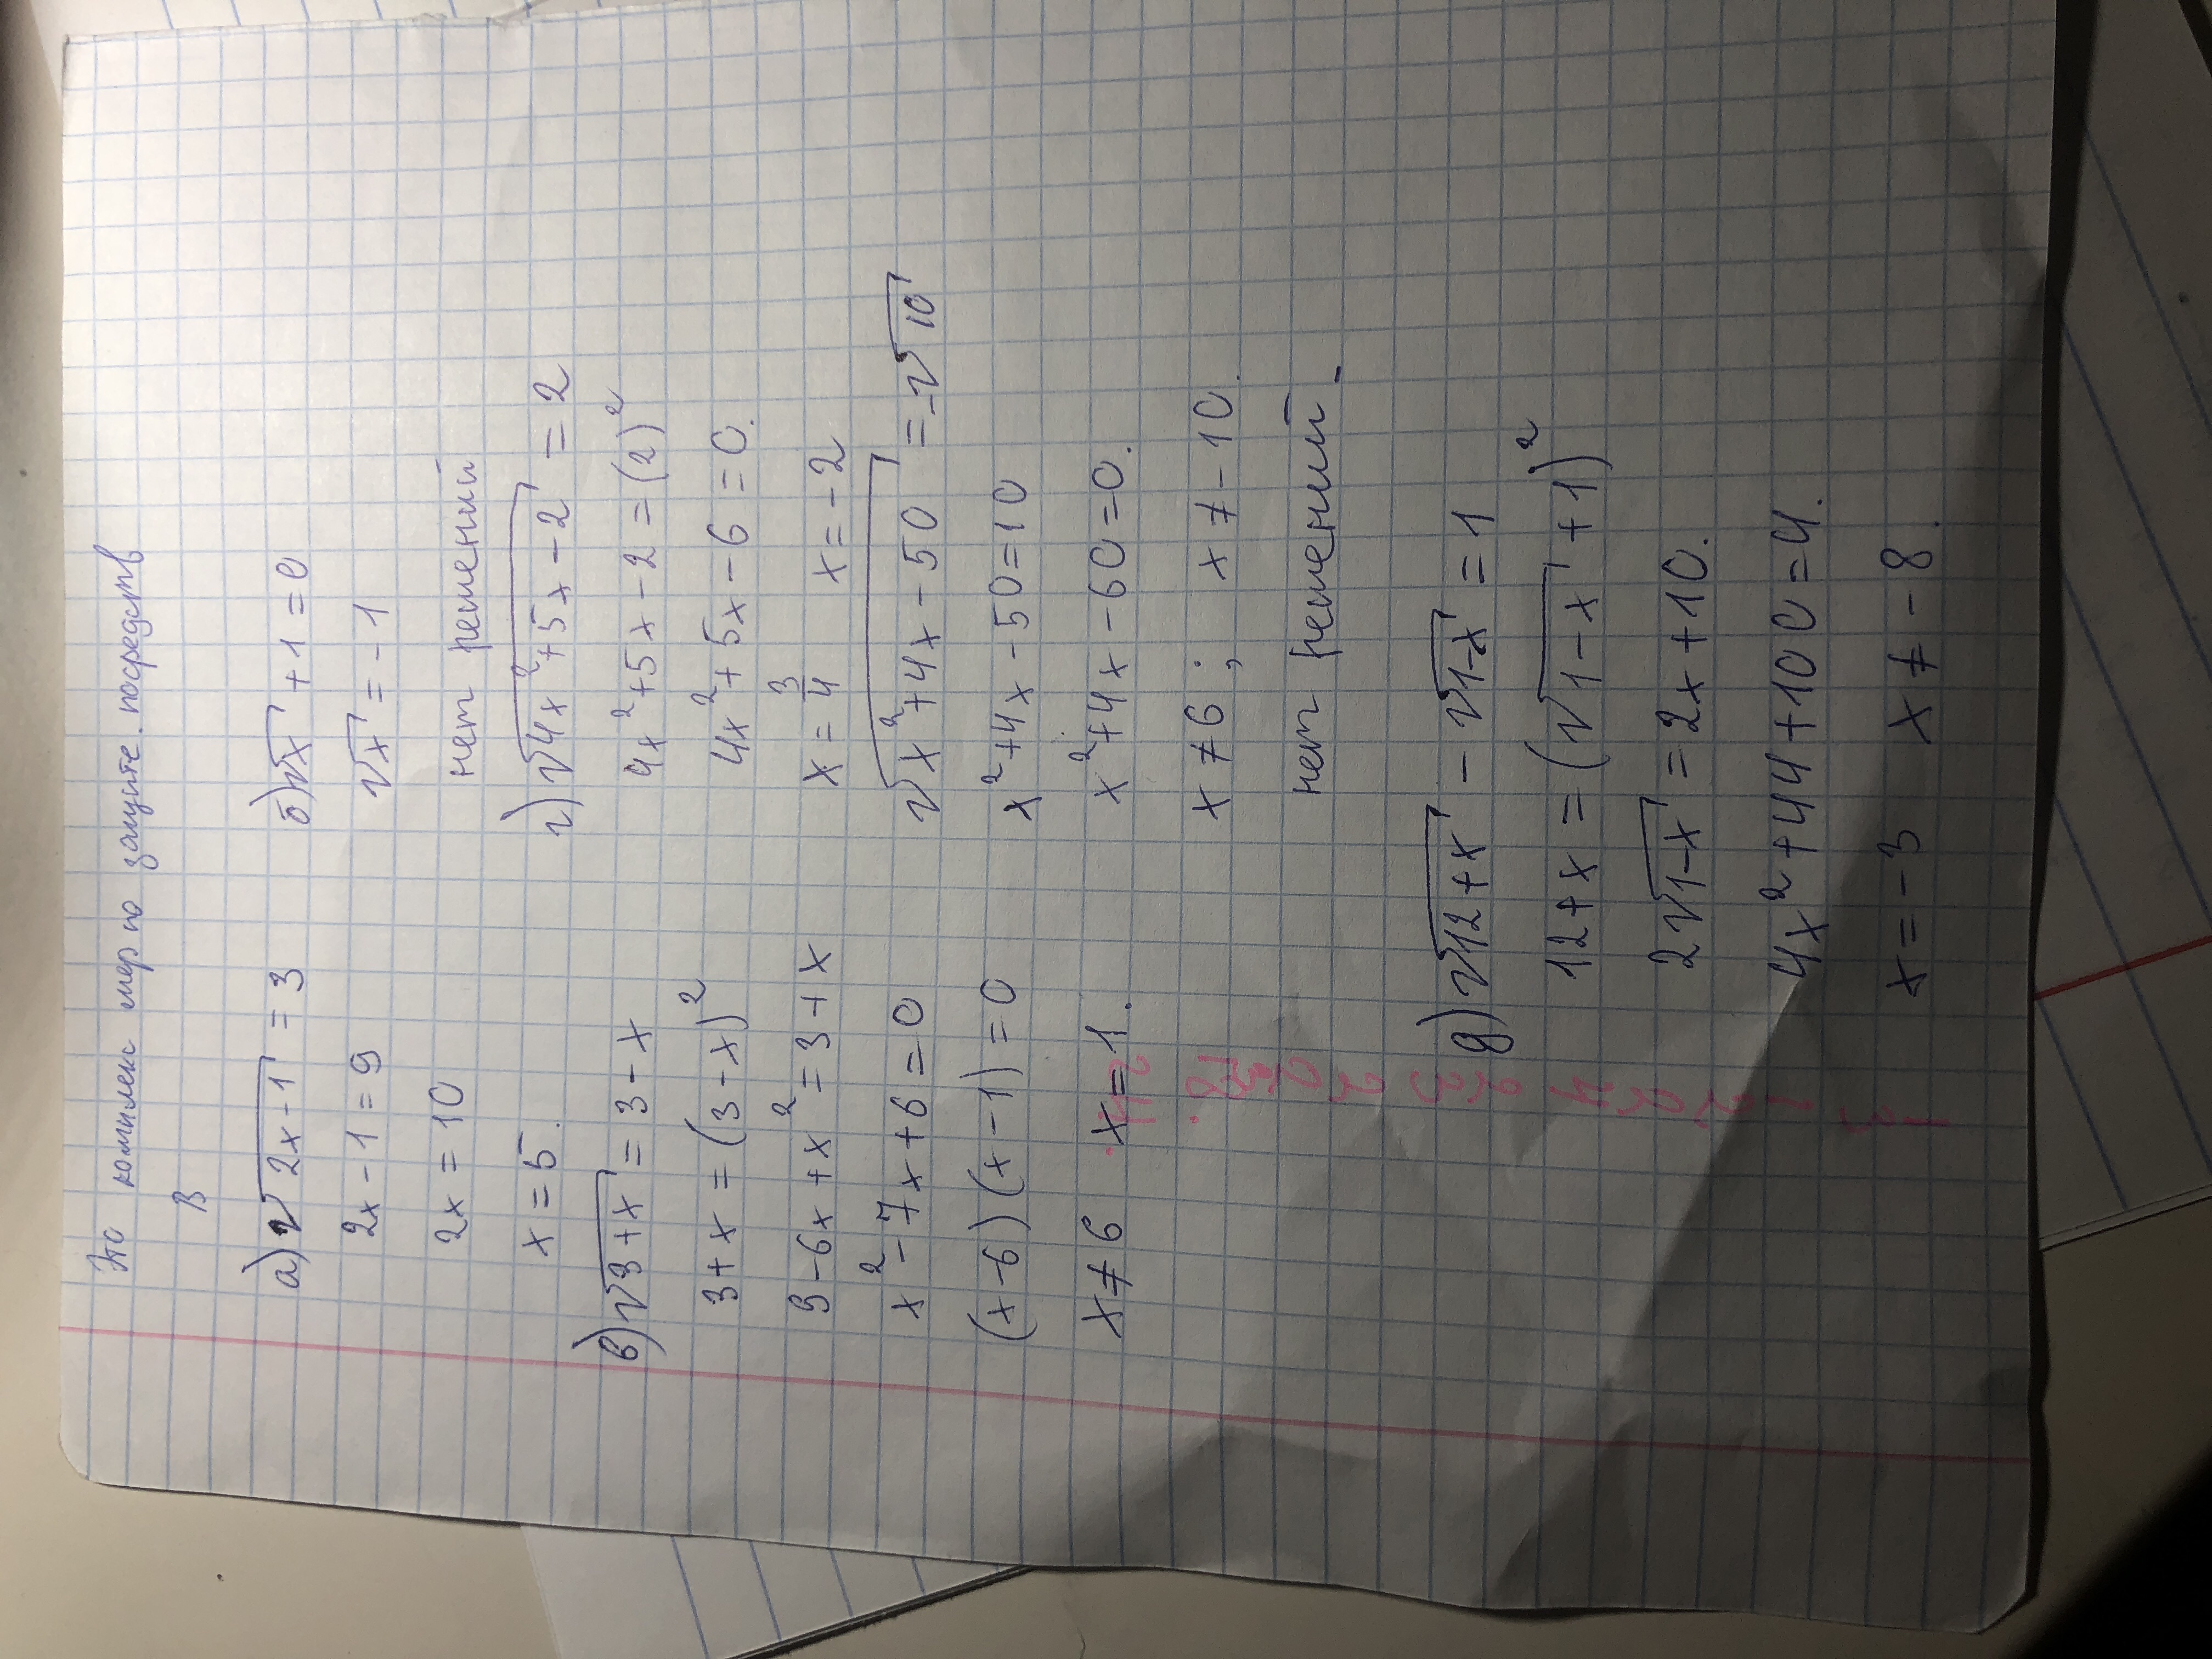 Это комплекс мер по защите. посредств
В
а) √2x-1 = 3
2x-1=9
2x=10
x=5.
б) √x +1=0
√x = -1
нет решений
в) √3+x = 3-x
3+x = (3-x)²
9-6x+x²=3+x
x²-7x+6=0
(x-6)(x-1)=0
x≠6 x=1.
г) √4x²+5x-2 = 2
4x²+5x-2=(2)²
4x²+5x-6=0.
x=3/4 x=-2
√x²+4x-50 = -√10
x²+4x-50=10
x²+4x-60=0.
x≠6; x≠-10.
нет решений.
д) √12+x - √1-x = 1
12+x=(√1-x +1)²
2√1-x = 2x+10.
4x²+44+100=4.
x=-3 x≠-8.